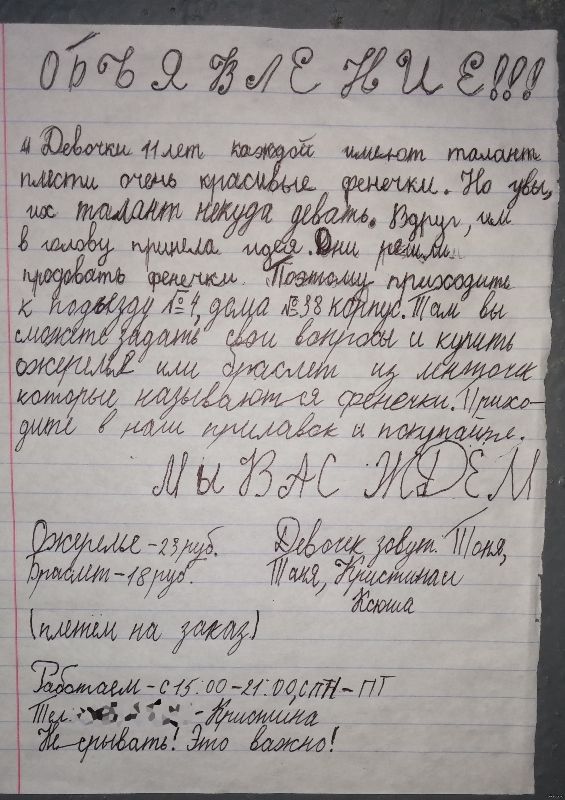 ОБЪЯВЛЕНИЕ!!!
" Девочки 11 лет каждой имеют талант
плести очень красивые фенечки. Но увы,
их талант некуда девать. Вдруг, им
в голову пришла идея. Они решили
продовать фенечки. Поэтому приходить
к подъезду №4, дома №38 корпус. Там вы
сможете задать свои вопросы и купить
ожерелье или браслет из ленточек
которые называются фенечки. Прихо-
дите в наш прилавок и покупайте.
МЫ ВАС ЖДЕМ
Ожерелье - 23 руб. Девочек зовут: Тоня,
Браслет - 18 руб. Таня, Кристина и
Ксюша
(плетём на заказ)
Работаем - с 15:00 - 21:00, с ПН - ПТ
Тел. - Кристина
Не срывать! Это важно!